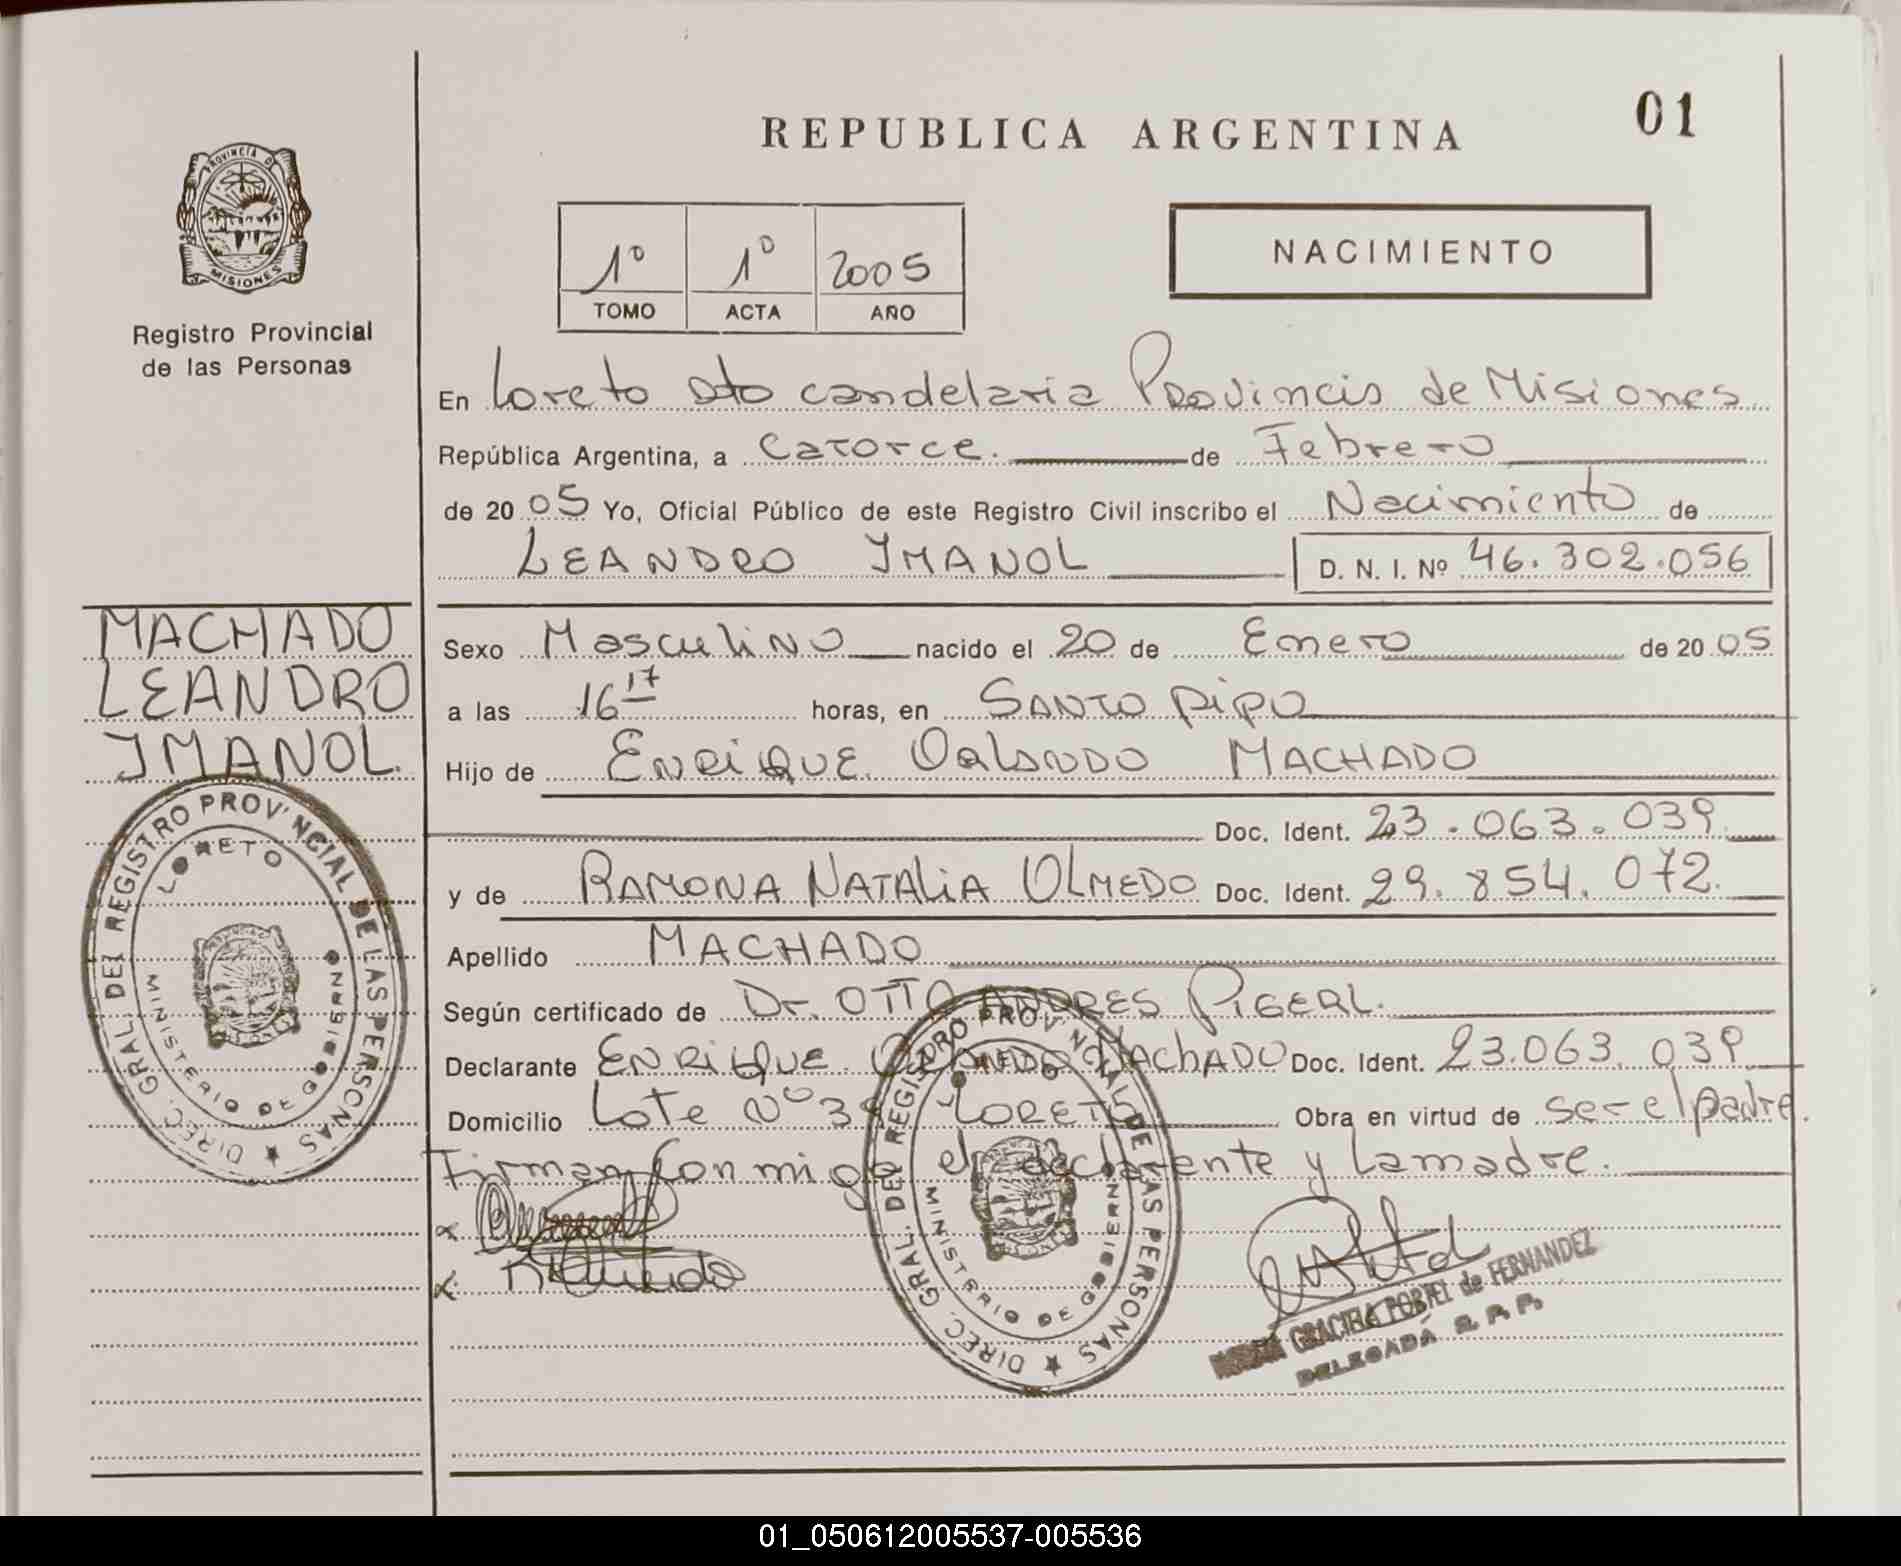 01
REPUBLICA ARGENTINA
PROVINCIA DE
MISIONES
Registro Provincial
de las Personas
NACIMIENTO
1º 1º 2005
TOMO ACTA AÑO
En Loreto Dto candelaria Provincia de Misiones
República Argentina, a Catorce. de Febrero
de 20 05 Yo, Oficial Público de este Registro Civil inscribo el Nacimiento de
LEANDRO IMANOL D. N. I. Nº 46.302.056
MACHADO
LEANDRO
IMANOL.
Sexo Masculino nacido el 20 de Enero de 20 05
a las 16 17 horas, en SANTO PIPO
Hijo de ENRIQUE ORLANDO MACHADO
Doc. Ident. 23.063.039
y de RAMONA NATALIA OLMEDO Doc. Ident. 29.854.072.
Apellido MACHADO
Según certificado de Dr. OTTO ANDRES PIGERL.
Declarante ENRIQUE ORLANDO MACHADO Doc. Ident. 23.063.039
Domicilio Lote Nº 38 LORETO Obra en virtud de ser el padre.
Firman Con migo el declarante y la madre.
DIREC. GRAL. DEL REGISTRO PROVINCIAL DE LAS PERSONAS
LORETO
MINISTERIO DE GOBIERNO
DIREC. GRAL. DEL REGISTRO PROVINCIAL DE LAS PERSONAS
LORETO
MINISTERIO DE GOBIERNO
GRACIELA PORTEL de FERNANDEZ
DELEGADA R. P. P.
01_050612005537-005536